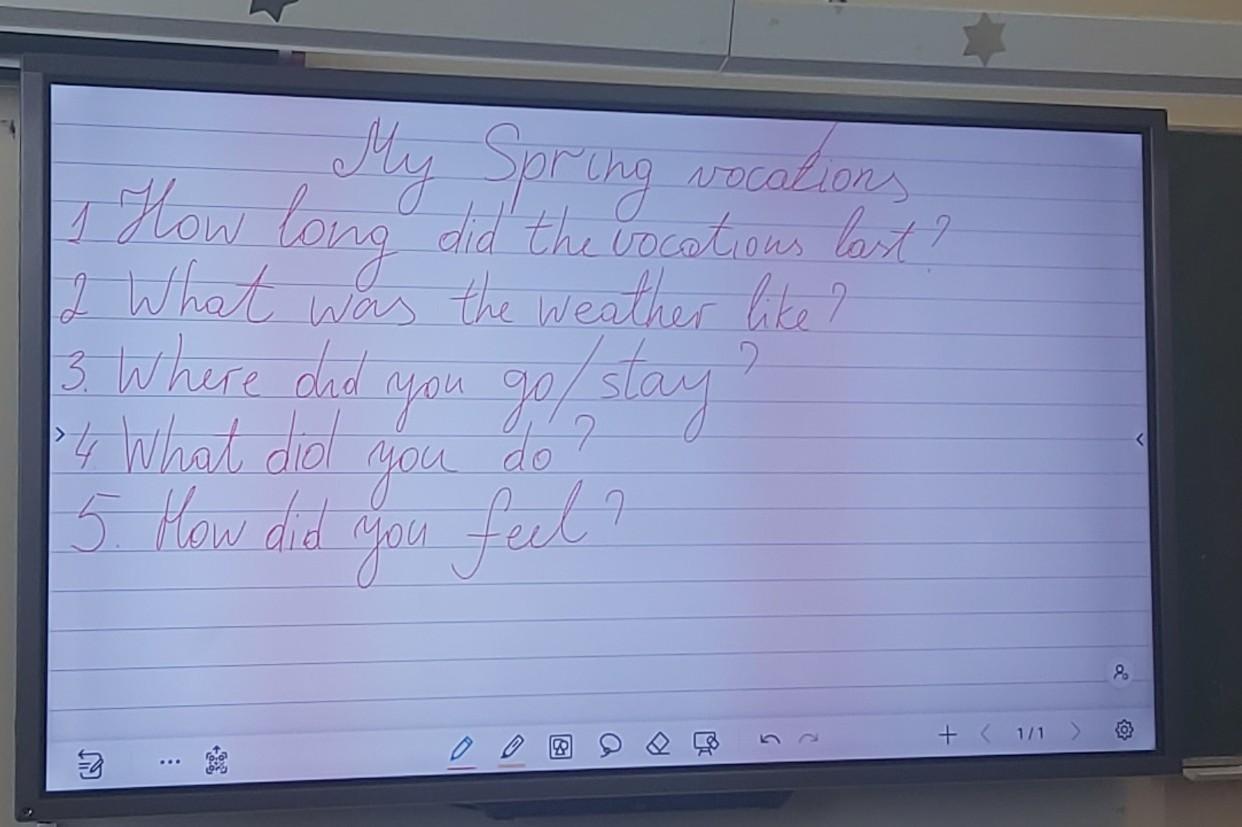 My Spring vocations
1 How long did the vocations last?
2 What was the weather like?
3. Where did you go/stay?
4 What did you do?
5. How did you feel?
1/1